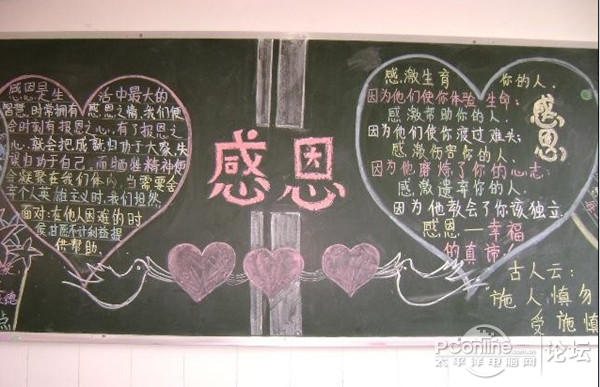 感恩是生 活中最大的
智慧.时常拥有感恩之情,我们便
会时刻有报恩之心,有了报恩之
心,就会把成就归功于大家,失
误归功于自己,而牺牲精神便
会凝聚在我们体内,当需要舍
言个人英雄主义时,我们坦然
面对:在他人困难的时
候,甘愿不计利益报
供帮助
感恩
感激生育 你的人.
因为他们使你体验生命;
感激帮助你的人.
因为他们使你渡过难关;
感激伤害你的人.
因为他磨炼了你的心志;
感激遗弃你的人.
因为他教会了你该独立.
感恩一幸福
的真谛
感恩
古人云:
施人慎勿
受施慎
德
点
PConline
www.pconline.com.cn
太平洋电脑网
论坛